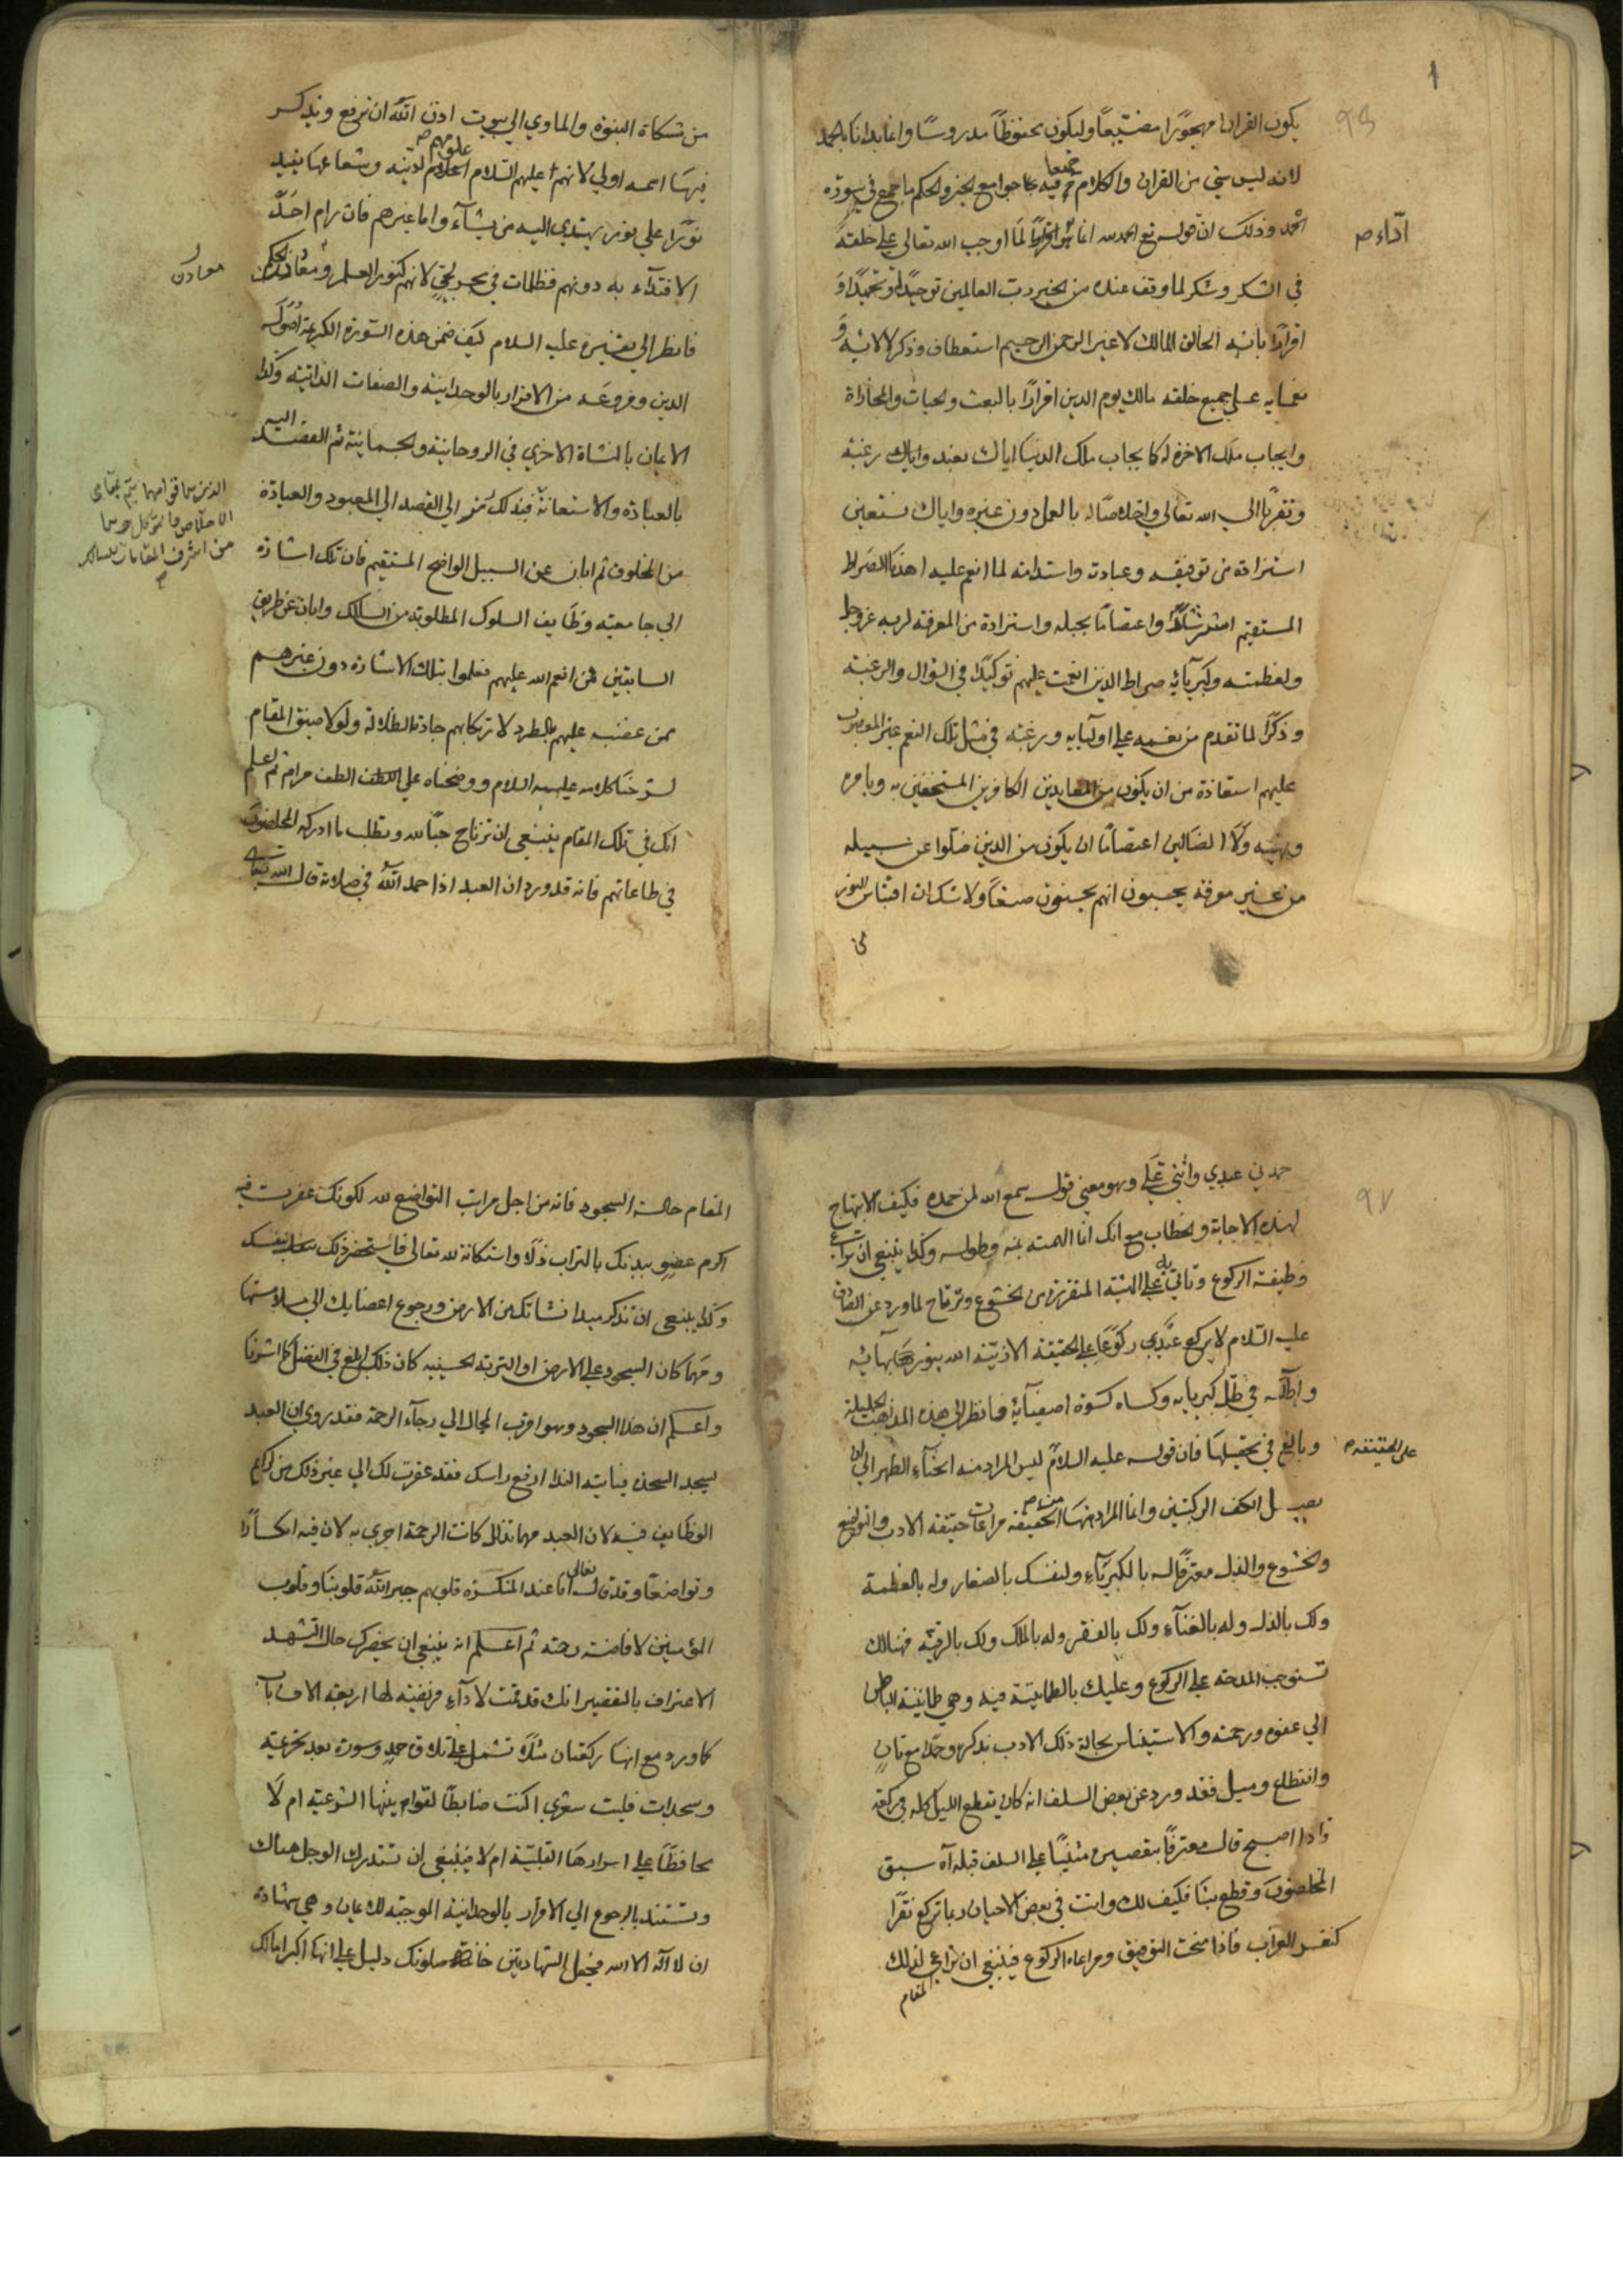 1
يكون القران مهجورًا مضيعًا وليكون محفوظًا مدروسًا وانما بدانا بالحمد
لانه ليس شي من القران والكلام جمع فيه جوامع الخير والحكم ما جمع في سورة
الحمد وذلك ان قوله تع الحمد لله انما هو لما اوجب الله تعالى على خلقه
اداء ص
في الشكر وشكر لما وفق عنده من الخير رب العالمين توحيدًا وتحميدًا و
اقرارًا بانه الخالق المالك لا غير الرحمن الرحيم استعطاف وذكر لالائه و
نعمايه على جميع خلقه مالك يوم الدين اقرارًا بالبعث والحيات والمجازاة
وايجاب ملك الاخرة له كايجاب ملك الدنيا اياك نعبد واياك رغبة
وتقربًا الى الله تعالى واخلاصًا له بالعمل دون غيره واياك نستعين
استزادة من توفيقه وعبادته واستدامة لما انعم عليه اهدنا الصراط
المستقيم واعتصامًا بحبله واستزادة من المعرفة لربه عز وجل
ولعظمته وكبريائه صراط الذين انعمت عليهم توكيدًا في السؤال والرغبة
وذكرًا لما تقدم من نعمه على اوليايه ورغبة في مثل تلك النعم غير المغضوب
عليهم استعاذة من ان يكون من المعاندين الكافرين المستخفين به وبامره
ونهيه ولا الضالين اعتصامًا ان يكون من الذين ضلوا عن سبيله
من غير معرفة يحسبون انهم يحسنون صنعًا ولا شك ان اقتباس النور
من مشكاة النبوة والماوي الى بيوت اذن الله ان ترفع ويذكر
فيها اسمه اولى لانهم عليهم السلام علومهم لدنيه وشعاعها يفيد
نورًا على نور يهتدي اليه من يشاء واما غيرهم فان رام احد
الاقتداء به دونهم فظلمات في بحر لجي لانهم كنوز العلم ومعادن
معادن
فانظر الى تفسيره عليه السلام كيف ضمن هذه السورة الكريمة اصول
الدين وفروعه من الاقرار بالوحدانية والصفات الذاتية وكذا
الايمان بالنشاة الاخري في الروحانية والجسمانية ثم القصد اليه
بالعبادة والاستعانة فبذلك الى القصد الى المعبود والعبادة
من اشرف المقامات
من المخلوق ثم ابان عن السبيل الواضح المستقيم فان تلك اشارة
الى جامعية وظايف السلوك المطلوبة من السالك وابان عن طريق
السابقين ممن انعم الله عليهم فعلموا بتلك الاشارة دون غيرهم
ممن غضب عليهم بالطرد لارتكابهم جادة الظلالة ولولا ضيق المقام
لشرحنا كلامه عليه السلام ووضحناه على الطف مرام ثم اعلم
انك في تلك المقام ينبغي ان ترتاح حبًا لله وتطلب ما ادركه المخلصون
في طاعاتهم فانه قد ورد ان العبد اذا حمد الله في صلاته قال الله تعالى
حمدني عبدي واثنى علي وهو معنى قوله سمع الله لمن حمده فكيف الابتهاج
لهذه الاجابة والخطاب مع انك انما الهمته بمنه وطوله وكذا ينبغي ان تراعي
وظيفة الركوع وتاتي به على الهيئة المتقررة من الخشوع وترتاح لما ورد عن الصادق
عليه السلام لا يركع عبدي ركوعًا على الحقيقة الا زينه الله بنور بهائه
واظله في ظل كبريايه وكساه كسوة اصفيائه فانظر الى هذه الجليلة
وبالغ في تحقيقها فان قوله عليه السلام ليس المراد منه انحناء الظهر الى ان
على الحقيقة ص
يصل الكف الركبتين وانما المراد منها الحقيقة مراعات حقيقة الادب والتواضع
والخشوع والذل معترفًا له بالكبرياء ولنفسك بالصغار وله بالعظمة
ولك بالذل وله بالغناء ولك بالفقر وله بالملك ولك بالرقية فهنالك
تستوجب المدحة على الركوع وعليك بالطمانينة فيه وهي طمانينة الباطن
الى عفوه ورحمته والاستيناس بحالة ذلك الادب بذكره وحده مع تان
وانقطاع وميل فقد ورد عن بعض السلف انه كان يقطع الليل كله في ركعة
فاذا اصبح قال معترفًا بتقصيره مثنيًا على السلف قبله آه سبق
المخلصون وقطع بنا فكيف لك وانت في بعض الاحيان ربما تركع نقرًا
كنقر الغراب فاذا منحت التوفيق ومراعاة الركوع فينبغي ان تراعي لذلك
المقام
المقام حالة السجود فانه من اجل مراتب التواضع لله لكونك عفرت فيه
اكرم عضو ببدنك بالتراب ذلًا واستكانة لله تعالى فاستحضر ذلك بنفسك
وكذا ينبغي ان تذكر مبدا نشاتك من الارض ورجوع اعضايك الى
ومهما كان السجود على الارض او التربة الحسينيه كان ذلك ابلغ في الفضل كما اشرنا
واعلم ان هذا السجود وهو اقرب المجال الى رجاء الرحمة فقد روي ان العبد
ليسجد السجدة فياتيه الندا ارفع راسك فقد غفرت لك الى غير ذلك من كرايم
الوظايف فيه لان العبد مهما تذلل كانت الرحمة احري به لان فيه انكسارًا
وتواضعًا وقد قال تعالى انا عند المنكسرة قلوبهم جبر الله قلوبنا وقلوب
المؤمنين لافاضة رحمته ثم اعلم انه ينبغي ان يحضرك حال التشهد
الاعتراف بالتقصير انك قد قمت لاداء فريضة لها اربعة الاف باب
كما ورد مع انها ركعتان مثلًا تشمل على تلاوة حمد وسورة بعد تحريمة
وسجدات فليت شعري اكنت ضابطًا لقوانينها الشرعية ام لا
محافظًا على اسرارها القلبية ام لا فينبغي ان تستدرك الوجل هناك
وتستند بالرجوع الى الاقرار بالوحدانية الموجبة للايمان وهي شهادة
ان لا اله الا الله فجعل الشهادتين خاتمة صلوتك دليل على انها اكبر امالك